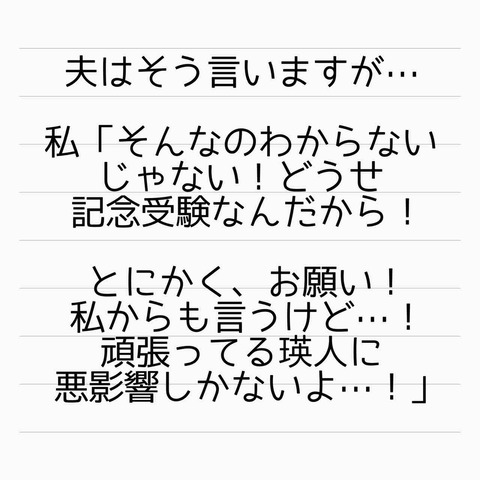 夫はそう言いますが…
私「そんなのわからない
じゃない！どうせ
記念受験なんだから！
とにかく、お願い！
私からも言うけど…！
頑張ってる瑛人に
悪影響しかないよ…！」